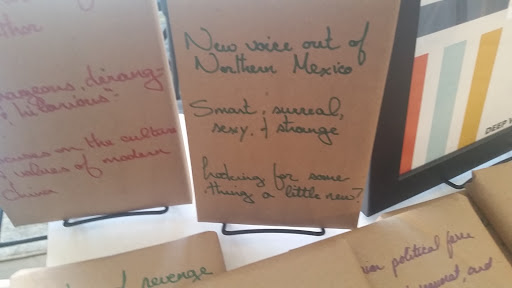 thor
ageous, derang-
& "hilarious"
cuses on the culture
& values of modern
China
New voice out of
Northern Mexico
Smart, surreal,
sexy, & strange
Looking for some
thing a little new?
DEEP
revenge
political
and